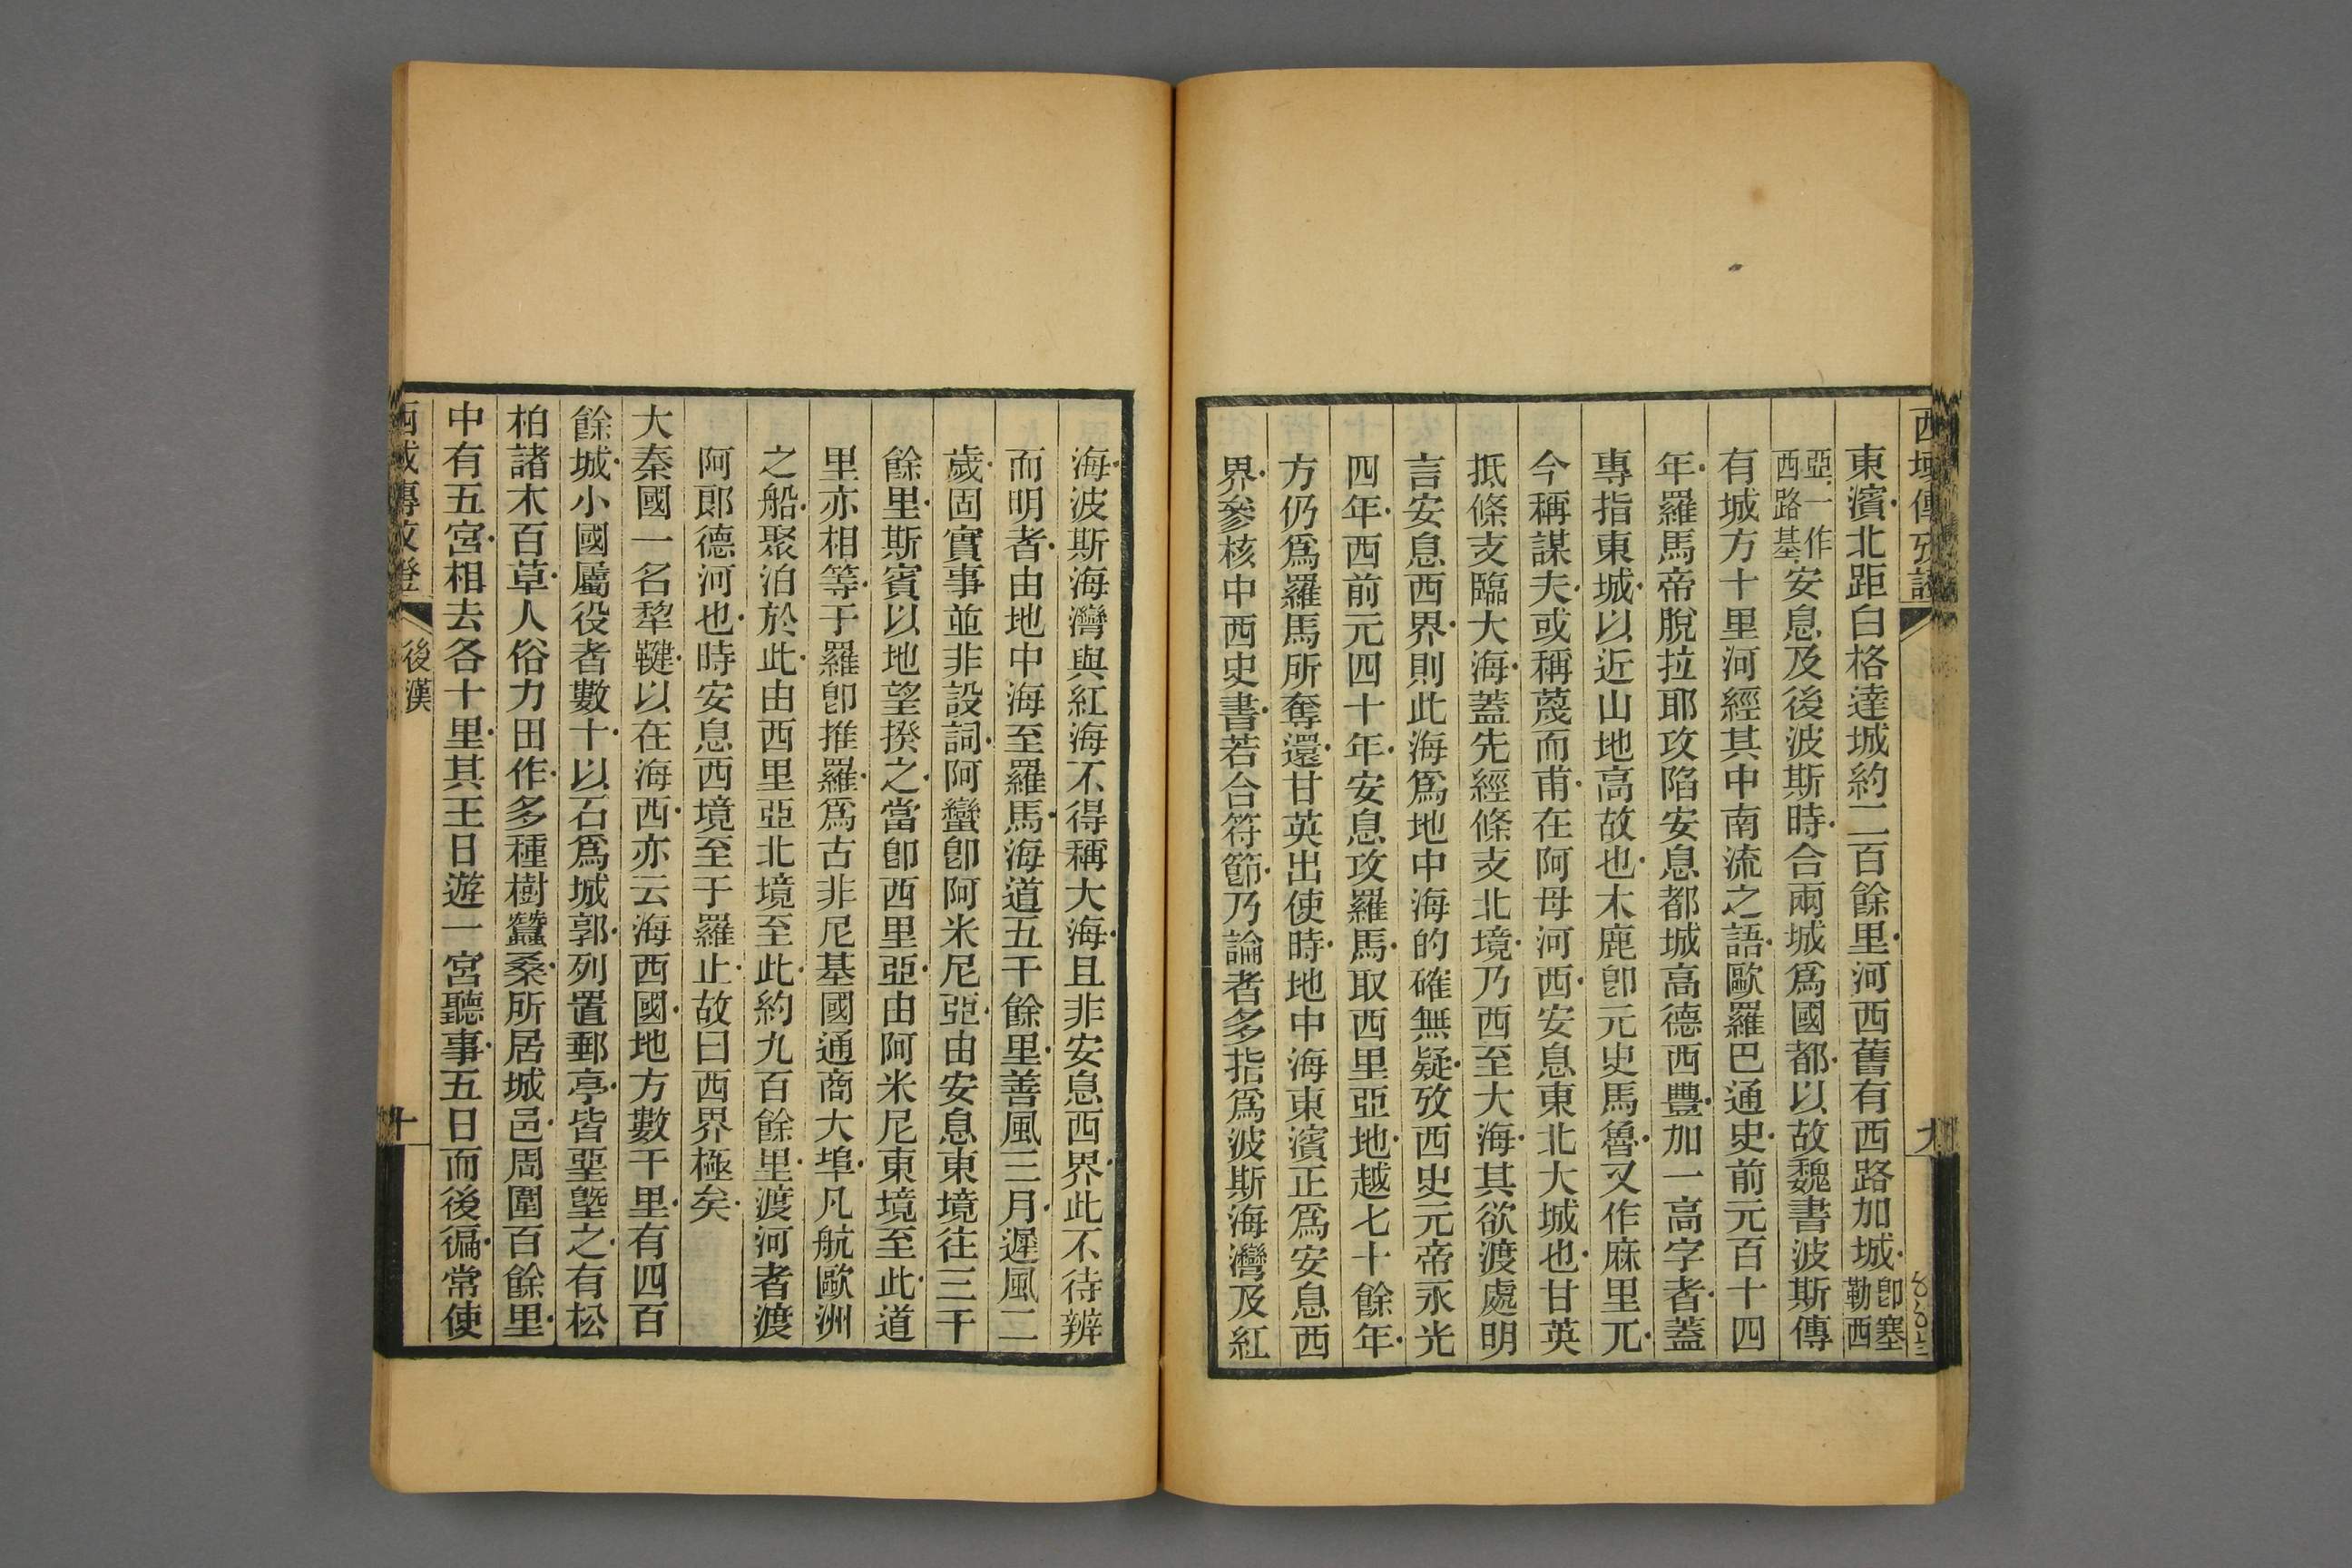 西域傳攷證
九
東濱北距白格達城約二百餘里河西舊有西路加城卽塞勒西
亞一作西路基安息及後波斯時合兩城爲國都以故魏書波斯傳
有城方十里河經其中南流之語歐羅巴通史前元百十四
年羅馬帝脫拉耶攻陷安息都城高德西豐加一高字者蓋
專指東城以近山地高故也木鹿卽元史馬魯又作麻里兀
今稱謀夫或稱蔑而甫在阿母河西安息東北大城也甘英
抵條支臨大海蓋先經條支北境乃西至大海其欲渡處明
言安息西界則此海爲地中海的確無疑攷西史元帝永光
四年西前元四十年安息攻羅馬取西里亞地越七十餘年
方仍爲羅馬所奪還甘英出使時地中海東濱正爲安息西
界參核中西史書若合符節乃論者多指爲波斯海灣及紅
海波斯海灣與紅海不得稱大海且非安息西界此不待辨
而明者由地中海至羅馬海道五千餘里善風三月遲風二
歲固實事並非設詞阿蠻卽阿米尼亞由安息東境往三千
餘里斯賓以地望揆之當卽西里亞由阿米尼東境至此道
里亦相等于羅卽推羅爲古非尼基國通商大埠凡航歐洲
之船聚泊於此由西里亞北境至此約九百餘里渡河者渡
阿郎德河也時安息西境至于羅止故曰西界極矣
大秦國一名犂鞬以在海西亦云海西國地方數千里有四百
餘城小國屬役者數十以石爲城郭列置郵亭皆堊塈之有松
柏諸木百草人俗力田作多種樹蠶桑所居城邑周圍百餘里
中有五宮相去各十里其王日遊一宮聽事五日而後徧常使
西域傳攷證
後漢
十